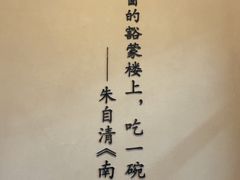 的豁蒙楼上，吃一碗
——朱自清《南